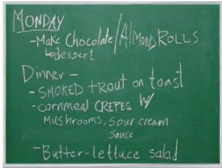 MONDAY
-Make Chocolate/Almond ROLLS
dessert
Dinner -
- SMOKED TROUT on toast
- cornmeal CREPES W/
Mushrooms, sour cream
sauce
- Butter-lettuce salad